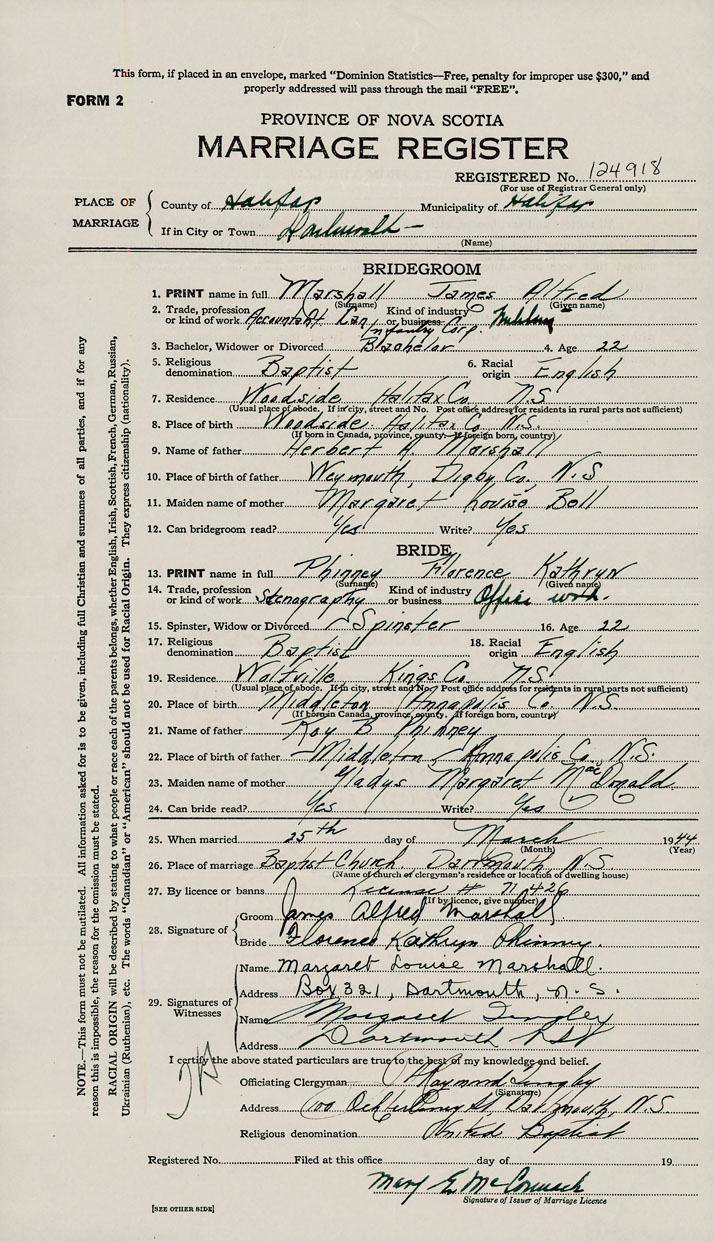 This form, if placed in an envelope, marked "Dominion Statistics—Free, penalty for improper use $300," and
properly addressed will pass through the mail "FREE".
FORM 2
PROVINCE OF NOVA SCOTIA
MARRIAGE REGISTER
REGISTERED No. 124918
(For use of Registrar General only)
PLACE OF MARRIAGE
County of Halifax Municipality of Halifax
If in City or Town Dartmouth
(Name)
BRIDEGROOM
1. PRINT name in full Marshall James Alfred
(Surname) (Given name)
2. Trade, profession or kind of work Accountant Can. Infantry Corp. Kind of industry or business Military
3. Bachelor, Widower or Divorced Bachelor 4. Age 22
5. Religious denomination Baptist 6. Racial origin English
7. Residence Woodside Halifax Co. N.S.
(Usual place of abode. If in city, street and No. Post office address for residents in rural parts not sufficient)
8. Place of birth Woodside Halifax Co. N.S.
(If born in Canada, province, county. If foreign born, country)
9. Name of father Herbert H. Marshall
10. Place of birth of father Weymouth, Digby Co., N.S
11. Maiden name of mother Margaret Louise Bell
12. Can bridegroom read? Yes Write? Yes
BRIDE
13. PRINT name in full Phinney Florence Kathryn
(Surname) (Given name)
14. Trade, profession or kind of work Stenography Kind of industry or business Office work.
15. Spinster, Widow or Divorced Spinster 16. Age 22
17. Religious denomination Baptist 18. Racial origin English
19. Residence Wolfville Kings Co. N.S.
(Usual place of abode. If in city, street and No? Post office address for residents in rural parts not sufficient)
20. Place of birth Middleton Annapolis Co. N.S
(If born in Canada, province, county. If foreign born, country)
21. Name of father Roy B Phinney
22. Place of birth of father Middleton Annapolis Co. N.S.
23. Maiden name of mother Gladys Margaret MacDonald
24. Can bride read? Yes Write? Yes
25. When married 25th day of March 1944
(Month) (Year)
26. Place of marriage Baptist Church Dartmouth N.S.
(Name of church or clergyman's residence or location of dwelling house)
27. By licence or banns License # 71426
(If by licence, give number)
28. Signature of
Groom James Alfred Marshall
Bride Florence Kathryn Phinney.
29. Signatures of Witnesses
Name Margaret Louise Marshall.
Address Box 321, Dartmouth, N.S.
Name Margaret Tingley
Address Dartmouth NS
I certify the above stated particulars are true to the best of my knowledge and belief.
Officiating Clergyman Raymond Tingley
(Signature)
Address 100 Ochterloney St Dartmouth, N.S
Religious denomination United Baptist
Registered No. Filed at this office day of 19
Mary E. McCormack
Signature of Issuer of Marriage Licence
[SEE OTHER SIDE]
NOTE.—This form must not be mutilated. All information asked for is to be given, including full Christian and surnames of all parties, and if for any
reason this is impossible, the reason for the omission must be stated.
RACIAL ORIGIN will be described by stating to what people or race each of the parents belongs, whether English, Irish, Scottish, French, German, Russian,
Ukrainian (Ruthenian), etc. The words "Canadian" or "American" should not be used for Racial Origin. They express citizenship (nationality).